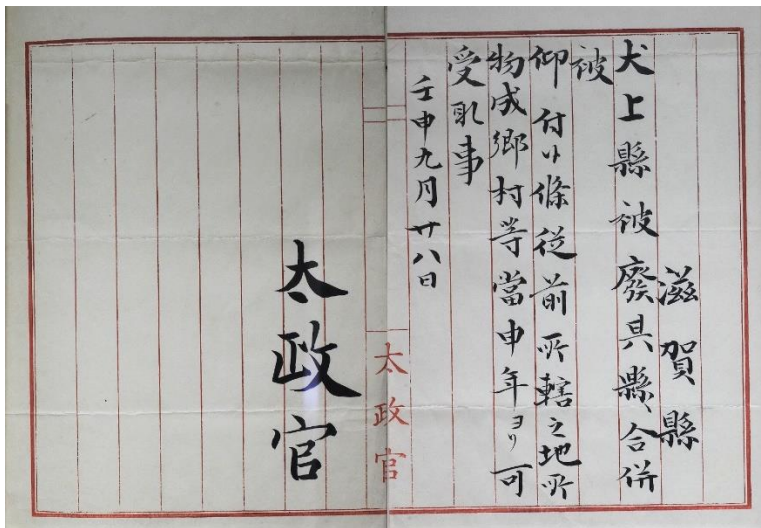 滋賀縣
犬上縣被廢其縣ヘ合併
被
仰付候條從前所轄之地所
物成鄉村等當申年ヨリ可
受取事
壬申九月廿八日
太政官
太政官